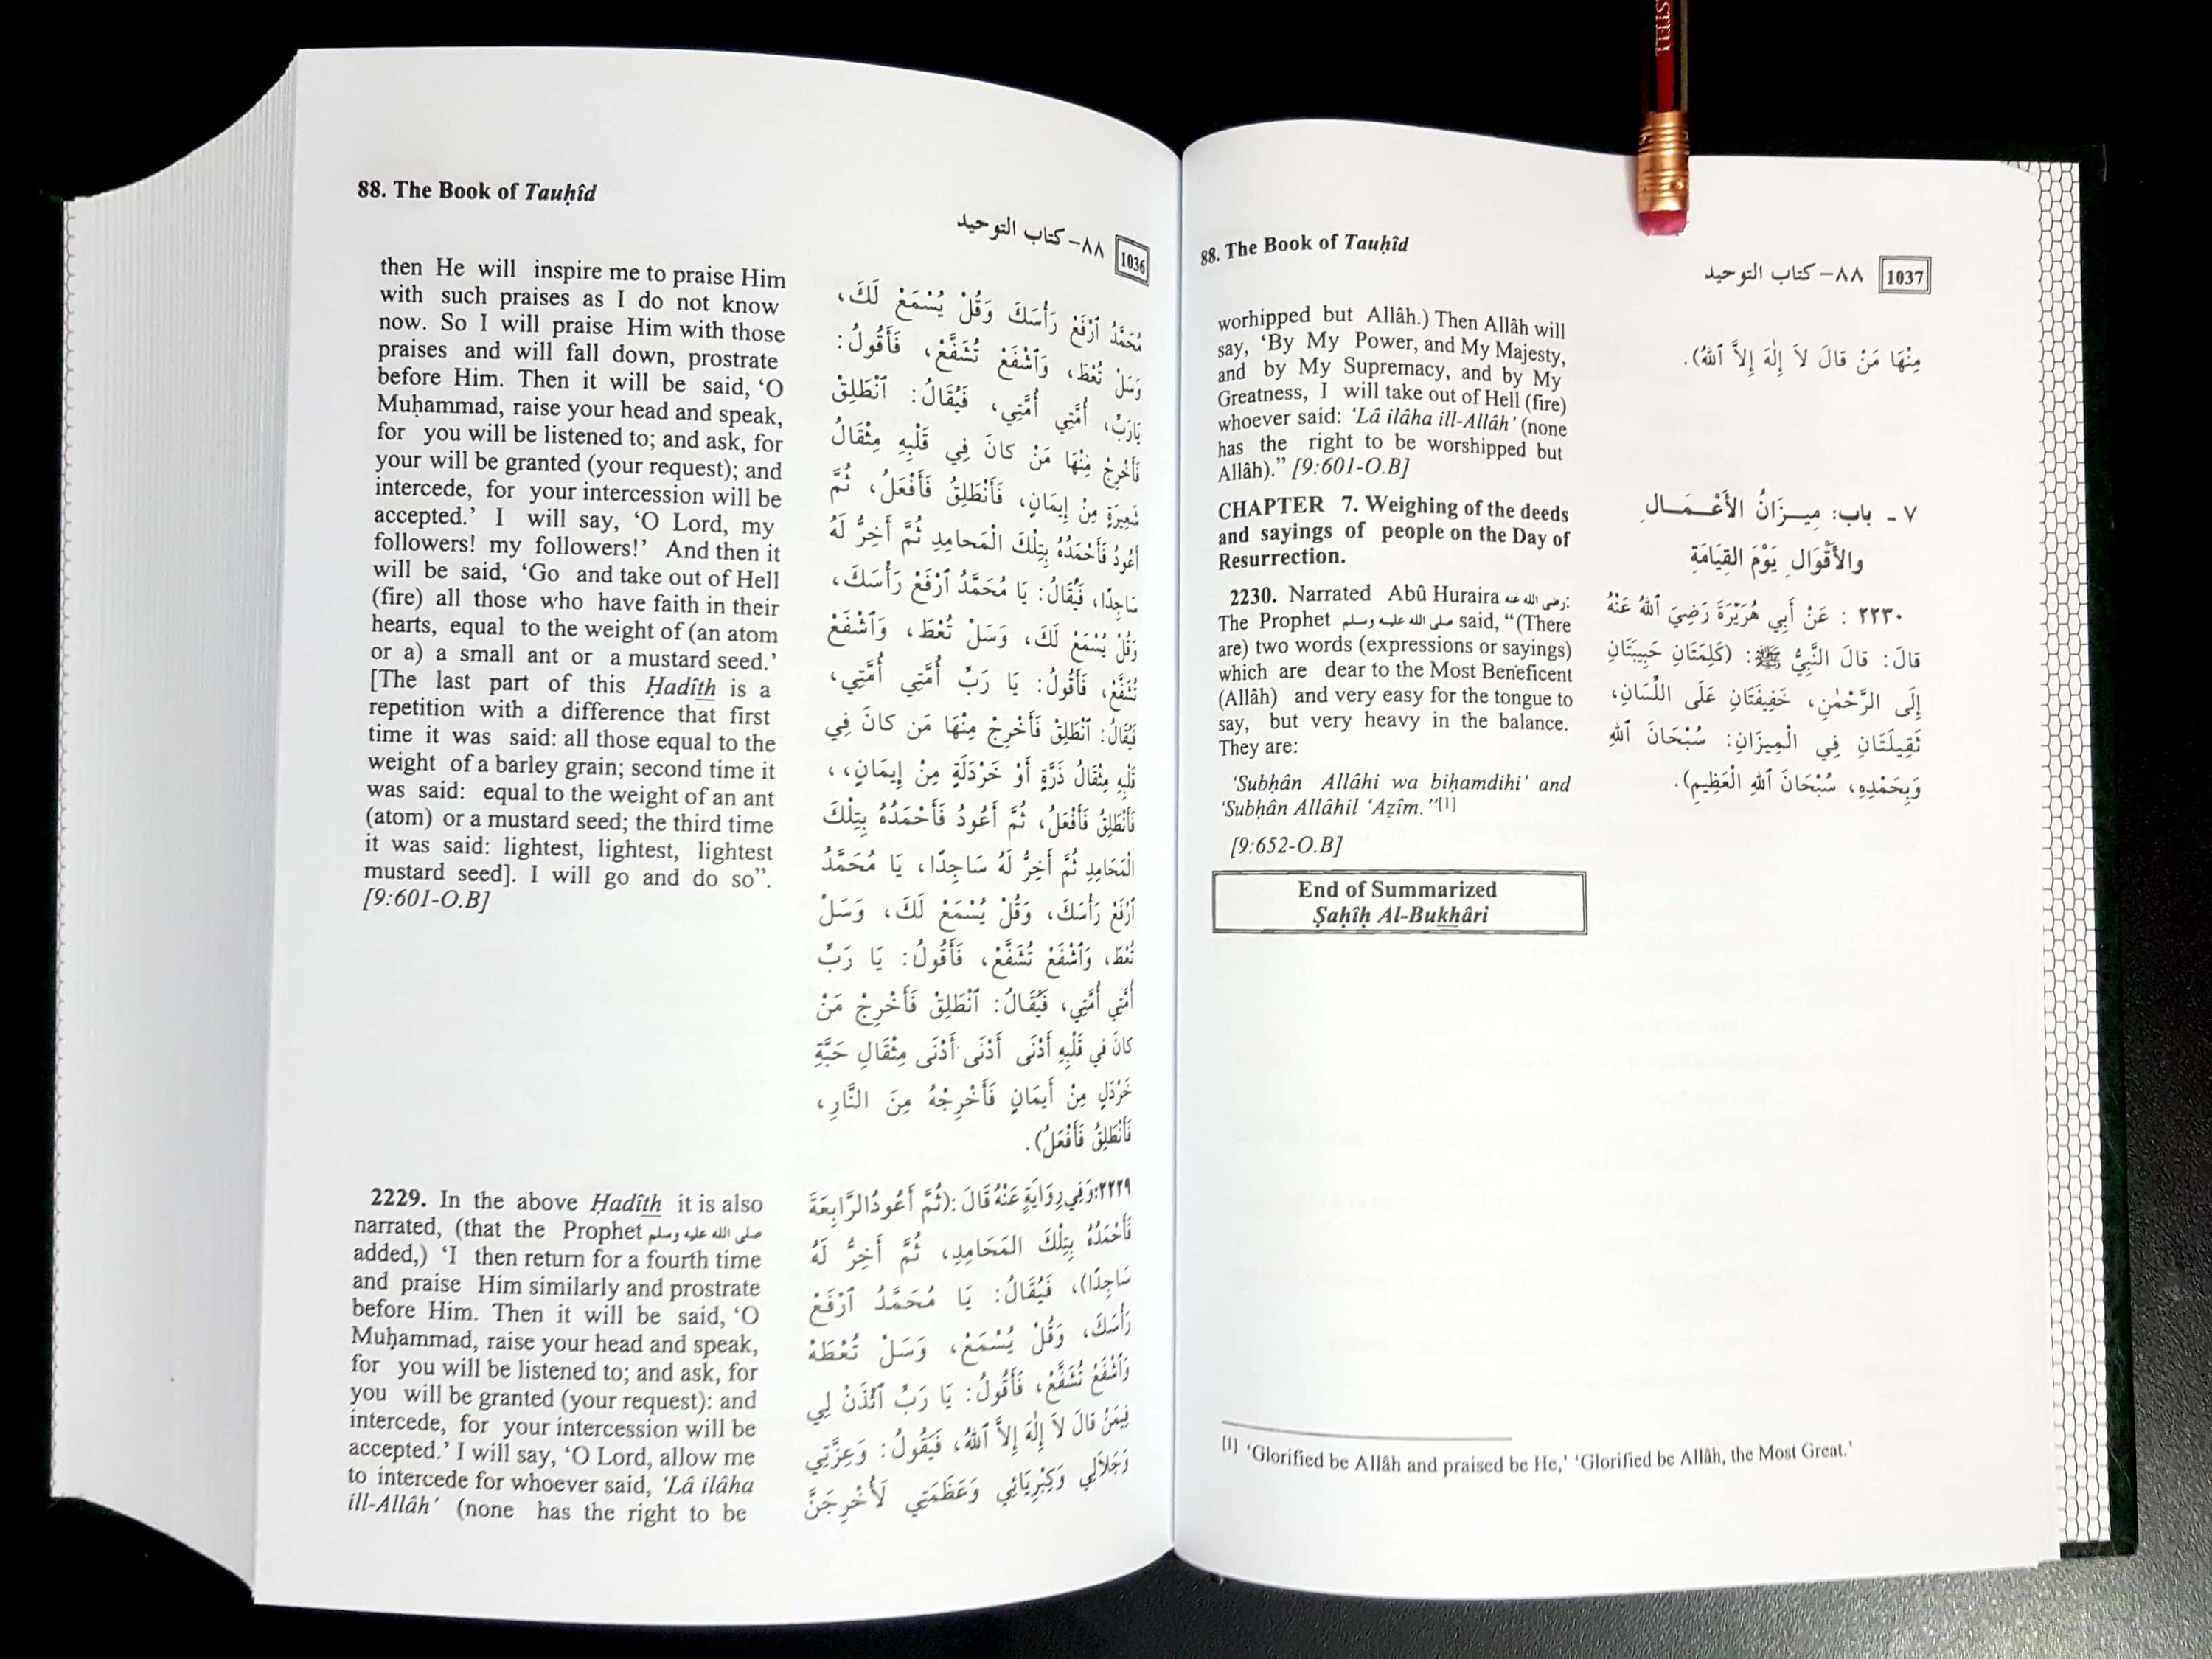 88. The Book of Tauḥîd
٨٨– كتاب التوحيد
1036
then He will inspire me to praise Him
with such praises as I do not know
now. So I will praise Him with those
praises and will fall down, prostrate
before Him. Then it will be said, ‘O
Muḥammad, raise your head and speak,
for you will be listened to; and ask, for
your will be granted (your request); and
intercede, for your intercession will be
accepted.’ I will say, ‘O Lord, my
followers! my followers!’ And then it
will be said, ‘Go and take out of Hell
(fire) all those who have faith in their
hearts, equal to the weight of (an atom
or a) a small ant or a mustard seed.’
[The last part of this Ḥadîth is a
repetition with a difference that first
time it was said: all those equal to the
weight of a barley grain; second time it
was said: equal to the weight of an ant
(atom) or a mustard seed; the third time
it was said: lightest, lightest, lightest
mustard seed]. I will go and do so”.
[9:601-O.B]
مُحَمَّدُ ٱرْفَعْ رَأْسَكَ وَقُلْ يُسْمَعْ لَكَ،
وَسَلْ تُعْطَ، وَٱشْفَعْ تُشَفَّعْ، فَأَقُولُ:
يَارَبِّ، أُمَّتِي أُمَّتِي، فَيُقَالُ: ٱنْطَلِقْ
فَأَخْرِجْ مِنْهَا مَنْ كانَ فِي قَلْبِهِ مِثْقَالُ
شَعِيرَةٍ مِنْ إِيمَانٍ، فَأَنْطَلِقُ فَأَفْعَلُ، ثُمَّ
أَعُودُ فَأَحْمَدُهُ بِتِلْكَ الْمَحامِدِ ثُمَّ أَخِرُّ لَهُ
سَاجِدًا، فَيُقَالُ: يَا مُحَمَّدُ ٱرْفَعْ رَأْسَكَ،
وَقُلْ يُسْمَعْ لَكَ، وَسَلْ تُعْطَ، وَٱشْفَعْ
تُشَفَّعْ، فَأَقُولُ: يَا رَبِّ أُمَّتِي أُمَّتِي،
فَيُقَالُ: ٱنْطَلِقْ فَأَخْرِجْ مِنْهَا مَن كانَ فِي
قَلْبِهِ مِثْقَالُ ذَرَّةٍ أَوْ خَرْدَلَةٍ مِنْ إِيمَانٍ،،
فَأَنْطَلِقُ فَأَفْعَلُ، ثُمَّ أَعُودُ فَأَحْمَدُهُ بِتِلْكَ
الْمَحَامِدِ ثُمَّ أَخِرُّ لَهُ سَاجِدًا، يَا مُحَمَّدُ
ٱرْفَعْ رَأْسَكَ، وَقُلْ يُسْمَعْ لَكَ، وَسَلْ
تُعْطَ، وَٱشْفَعْ تُشَفَّعْ، فَأَقُولُ: يَا رَبِّ
أُمَّتِي أُمَّتِي، فَيُقَالُ: ٱنْطَلِقْ فَأَخْرِجْ مَنْ
كانَ في قَلْبِهِ أَدْنَى أَدْنَى أَدْنَى مِثْقَالِ حَبَّةِ
خَرْدَلٍ مِنْ أَيمَانٍ فَأَخْرِجْهُ مِنَ النَّارِ،
فَأَنْطَلِقُ فَأَفْعَلُ).
2229. In the above Ḥadîth it is also
narrated, (that the Prophet صلى الله عليه وسلم
added,) ‘I then return for a fourth time
and praise Him similarly and prostrate
before Him. Then it will be said, ‘O
Muḥammad, raise your head and speak,
for you will be listened to; and ask, for
you will be granted (your request): and
intercede, for your intercession will be
accepted.’ I will say, ‘O Lord, allow me
to intercede for whoever said, ‘Lâ ilâha
ill-Allâh’ (none has the right to be
٢٢٢٩: وَفِي رِوَايَةٍ عَنْهُ قَالَ: (ثُمَّ أَعُودُ الرَّابِعَةَ
فَأَحْمَدُهُ بِتِلْكَ المَحَامِدِ، ثُمَّ أَخِرُّ لَهُ
سَاجِدًا)، فَيُقَالُ: يَا مُحَمَّدُ ٱرْفَعْ
رَأْسَكَ، وَقُلْ يُسْمَعْ، وَسَلْ تُعْطَهْ
وَٱشْفَعْ تُشَفَّعْ، فَأَقُولُ: يَا رَبِّ ٱئْذَنْ لِي
فِيمَنْ قَالَ لاَ إِلٰهَ إِلاَّ ٱللهُ، فَيَقُولُ: وَعِزَّتِي
وَجَلاَلِي وَكِبْرِيَائِي وَعَظَمَتِي لَأُخْرِجَنَّ
88. The Book of Tauḥîd
٨٨– كتاب التوحيد
1037
worhipped but Allâh.) Then Allâh will
say, ‘By My Power, and My Majesty,
and by My Supremacy, and by My
Greatness, I will take out of Hell (fire)
whoever said: ‘Lâ ilâha ill-Allâh’ (none
has the right to be worshipped but
Allâh).” [9:601-O.B]
مِنْهَا مَنْ قالَ لاَ إِلٰهَ إِلاَّ ٱللهُ).
CHAPTER 7. Weighing of the deeds
and sayings of people on the Day of
Resurrection.
٧ ـ باب: مِيـزَانُ الأَعْـمَـالِ
والأَقْوَالِ يَوْمَ القِيَامَةِ
2230. Narrated Abû Huraira رضى الله عنه:
The Prophet صلى الله عليه وسلم said, “(There
are) two words (expressions or sayings)
which are dear to the Most Beneficent
(Allâh) and very easy for the tongue to
say, but very heavy in the balance.
They are:
‘Subḥân Allâhi wa biḥamdihi’ and
‘Subḥân Allâhil ‘Aẓîm.”[1]
[9:652-O.B]
٢٢٣٠ : عَنْ أَبِي هُرَيْرَةَ رَضِيَ ٱللهُ عَنْهُ
قالَ: قالَ النَّبِيُّ ﷺ: (كَلِمَتَانِ حَبِيبَتَانِ
إِلَى الرَّحْمٰنِ، خَفِيفَتَانِ عَلَى اللِّسَانِ،
ثَقِيلَتَانِ فِي الْمِيزَانِ: سُبْحَانَ ٱللهِ
وَبِحَمْدِهِ، سُبْحَانَ ٱللهِ الْعَظِيمِ).
End of Summarized
Ṣaḥîḥ Al-Bukhâri
[1] ‘Glorified be Allâh and praised be He,’ ‘Glorified be Allâh, the Most Great.’